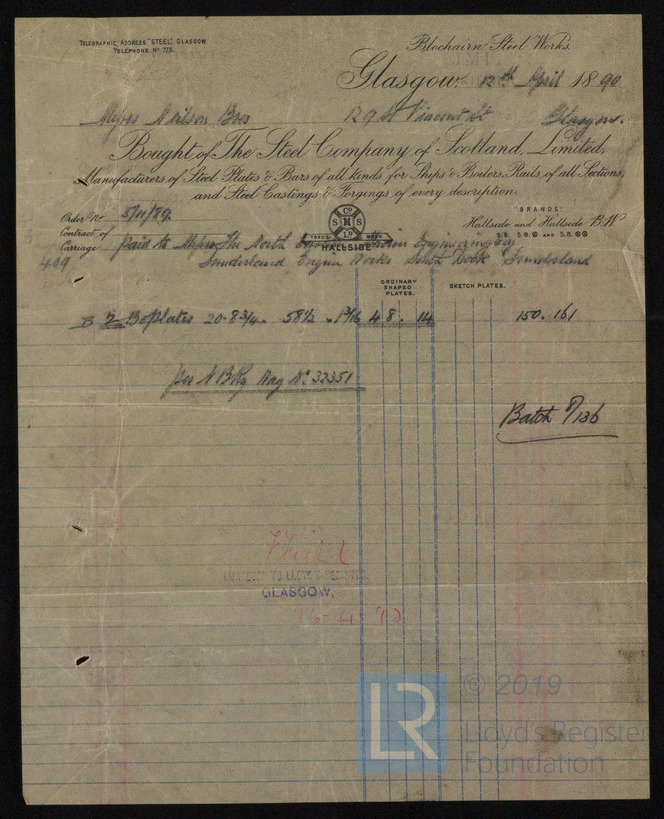 TELEGRAPHIC ADDRESS "STEEL", GLASGOW
TELEPHONE Nº 778.
Blochairn Steel Works.
Glasgow, 12th April 1890
Messrs Neilson Bros 129 St Vincent St Glasgow.
Bought of The Steel Company of Scotland, Limited,
Manufacturers of Steel Plates & Bars of all kinds for Ships & Boilers, Rails of all Sections,
and Steel Castings & Forgings of every description.
Order No 5/11/89.
"BRANDS"
Hallside and Hallside B.W
S.B. S.B. AND S.B.
Contract of
Carriage paid to Messrs The North Eastern Marine Engineering Coy
TRADE MARK
HALLSIDE
S Co S M S Ld
409 Sunderland Engine Works South Dock Sunderland
ORDINARY SHAPED PLATES.
SKETCH PLATES.
B 2 Bo Plates 20-8 3/4 . 58 1/2 . 1 3/16 48 . 14 150. 161
per N B Ry Wag No 32351
Batch 8/136
LLOYD'S REGISTER
GLASGOW,
© 2019
LR
Lloyd's Register
Foundation